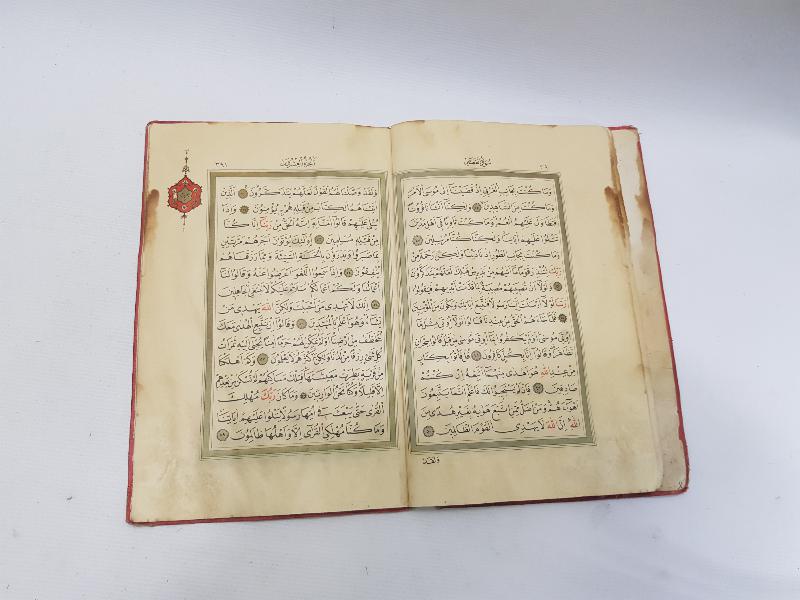 سُورَةُ الْقَصَصِ
وَمَا كُنْتَ بِجَانِبِ الْغَرْبِيِّ اِذْ قَضَيْنَا اِلٰى مُوسَى الْاَمْرَ
وَمَا كُنْتَ مِنَ الشَّاهِدِينَ وَلٰكِنَّا اَنْشَأْنَا قُرُونًا
فَتَطَاوَلَ عَلَيْهِمُ الْعُمُرُ وَمَا كُنْتَ ثَاوِيًا فِي اَهْلِ مَدْيَنَ
تَتْلُوا عَلَيْهِمْ اٰيَاتِنَا وَلٰكِنَّا كُنَّا مُرْسِلِينَ
وَمَا كُنْتَ بِجَانِبِ الطُّورِ اِذْ نَادَيْنَا وَلٰكِنْ رَحْمَةً مِنْ
رَبِّكَ لِتُنْذِرَ قَوْمًا مَا اَتٰيهُمْ مِنْ نَذِيرٍ مِنْ قَبْلِكَ لَعَلَّهُمْ يَتَذَكَّرُونَ
وَلَوْلَا اَنْ تُصِيبَهُمْ مُصِيبَةٌ بِمَا قَدَّمَتْ اَيْدِيهِمْ فَيَقُولُوا
رَبَّنَا لَوْلَا اَرْسَلْتَ اِلَيْنَا رَسُولًا فَنَتَّبِعَ اٰيَاتِكَ وَنَكُونَ مِنَ الْمُؤْمِنِينَ
فَلَمَّا جَاءَهُمُ الْحَقُّ مِنْ عِنْدِنَا قَالُوا لَوْلَا اُوتِيَ مِثْلَ مَا
اُوتِيَ مُوسٰى اَوَلَمْ يَكْفُرُوا بِمَا اُوتِيَ مُوسٰى مِنْ قَبْلُ قَالُوا سِحْرَانِ
تَظَاهَرَا وَقَالُوا اِنَّا بِكُلٍّ كَافِرُونَ قُلْ فَأْتُوا بِكِتَابٍ
مِنْ عِنْدِ اللّٰهِ هُوَ اَهْدٰى مِنْهُمَا اَتَّبِعْهُ اِنْ كُنْتُمْ
صَادِقِينَ فَاِنْ لَمْ يَسْتَجِيبُوا لَكَ فَاعْلَمْ اَنَّمَا يَتَّبِعُونَ
اَهْوَاءَهُمْ وَمَنْ اَضَلُّ مِمَّنِ اتَّبَعَ هَوٰيهُ بِغَيْرِ هُدًى مِنَ
اللّٰهِ اِنَّ اللّٰهَ لَا يَهْدِي الْقَوْمَ الظَّالِمِينَ
وَلَقَدْ
اَلْجُزْءُ الْعِشْرُونَ ٣٩١
وَلَقَدْ وَصَّلْنَا لَهُمُ الْقَوْلَ لَعَلَّهُمْ يَتَذَكَّرُونَ اَلَّذِينَ
اٰتَيْنَاهُمُ الْكِتَابَ مِنْ قَبْلِهِ هُمْ بِهِ يُؤْمِنُونَ وَاِذَا
يُتْلٰى عَلَيْهِمْ قَالُوا اٰمَنَّا بِهِ اِنَّهُ الْحَقُّ مِنْ رَبِّنَا اِنَّا كُنَّا
مِنْ قَبْلِهِ مُسْلِمِينَ اُولٰئِكَ يُؤْتَوْنَ اَجْرَهُمْ مَرَّتَيْنِ
بِمَا صَبَرُوا وَيَدْرَؤُنَ بِالْحَسَنَةِ السَّيِّئَةَ وَمِمَّا رَزَقْنَاهُمْ
يُنْفِقُونَ وَاِذَا سَمِعُوا اللَّغْوَ اَعْرَضُوا عَنْهُ وَقَالُوا لَنَا
اَعْمَالُنَا وَلَكُمْ اَعْمَالُكُمْ سَلَامٌ عَلَيْكُمْ لَا نَبْتَغِي الْجَاهِلِينَ
اِنَّكَ لَا تَهْدِي مَنْ اَحْبَبْتَ وَلٰكِنَّ اللّٰهَ يَهْدِي مَنْ
يَشَاءُ وَهُوَ اَعْلَمُ بِالْمُهْتَدِينَ وَقَالُوا اِنْ نَتَّبِعِ الْهُدٰى مَعَكَ
نُتَخَطَّفْ مِنْ اَرْضِنَا اَوَلَمْ نُمَكِّنْ لَهُمْ حَرَمًا اٰمِنًا يُجْبٰى اِلَيْهِ ثَمَرَاتُ
كُلِّ شَيْءٍ رِزْقًا مِنْ لَدُنَّا وَلٰكِنَّ اَكْثَرَهُمْ لَا يَعْلَمُونَ وَكَمْ اَهْلَكْنَا
مِنْ قَرْيَةٍ بَطِرَتْ مَعِيشَتَهَا فَتِلْكَ مَسَاكِنُهُمْ لَمْ تُسْكَنْ مِنْ بَعْدِهِمْ
اِلَّا قَلِيلًا وَكُنَّا نَحْنُ الْوَارِثِينَ وَمَا كَانَ رَبُّكَ مُهْلِكَ
الْقُرٰى حَتّٰى يَبْعَثَ فِي اُمِّهَا رَسُولًا يَتْلُوا عَلَيْهِمْ اٰيَاتِنَا
وَمَا كُنَّا مُهْلِكِي الْقُرٰى اِلَّا وَاَهْلُهَا ظَالِمُونَ